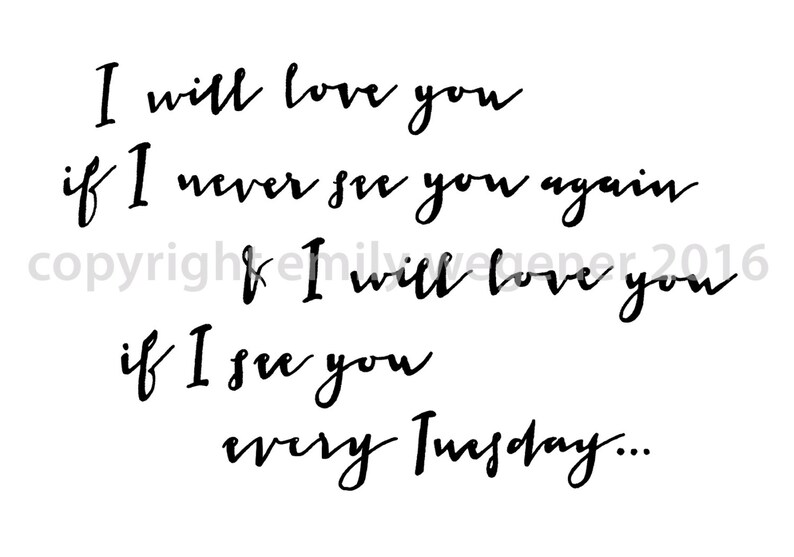 I will love you
if I never see you again
copyright emily wegener 2016
& I will love you
if I see you
every Tuesday...